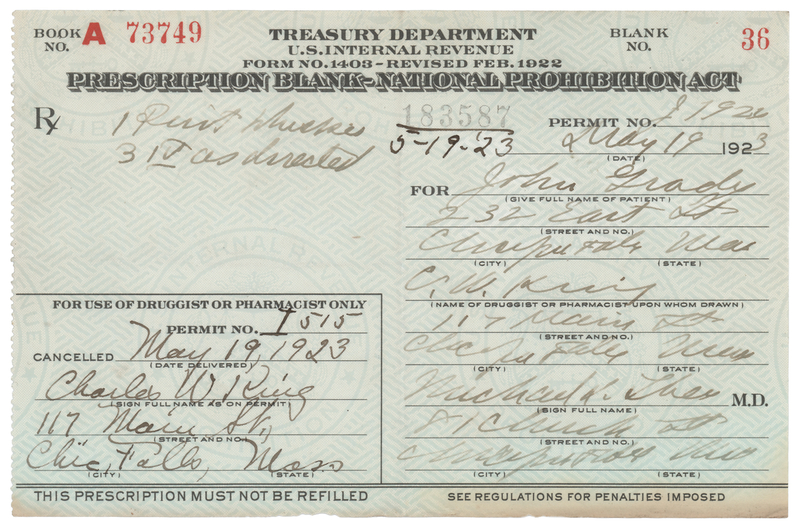 BOOK NO. A 73749
TREASURY DEPARTMENT
U.S. INTERNAL REVENUE
FORM NO. 1403-REVISED FEB. 1922
BLANK NO. 36
PRESCRIPTION BLANK-NATIONAL PROHIBITION ACT
Rx
1 Pint Whiskey
3 IV as directed
183587
5-19-'23
PERMIT NO.
May 19 1923
(DATE)
FOR John Grady
(GIVE FULL NAME OF PATIENT)
232 East St
(STREET AND NO.)
(CITY) (STATE)
C. W. King
(NAME OF DRUGGIST OR PHARMACIST UPON WHOM DRAWN)
117 Main St
(STREET AND NO.)
(CITY) (STATE)
Michael M.D.
(SIGN FULL NAME)
81 Church St
(STREET AND NO.)
(CITY) (STATE)
FOR USE OF DRUGGIST OR PHARMACIST ONLY
PERMIT NO. I 515
CANCELLED May 19, 1923
(DATE DELIVERED)
Charles W. King
(SIGN FULL NAME AS ON PERMIT)
117 Main St,
(STREET AND NO.)
Chic, Falls, Mass
(CITY) (STATE)
THIS PRESCRIPTION MUST NOT BE REFILLED
SEE REGULATIONS FOR PENALTIES IMPOSED